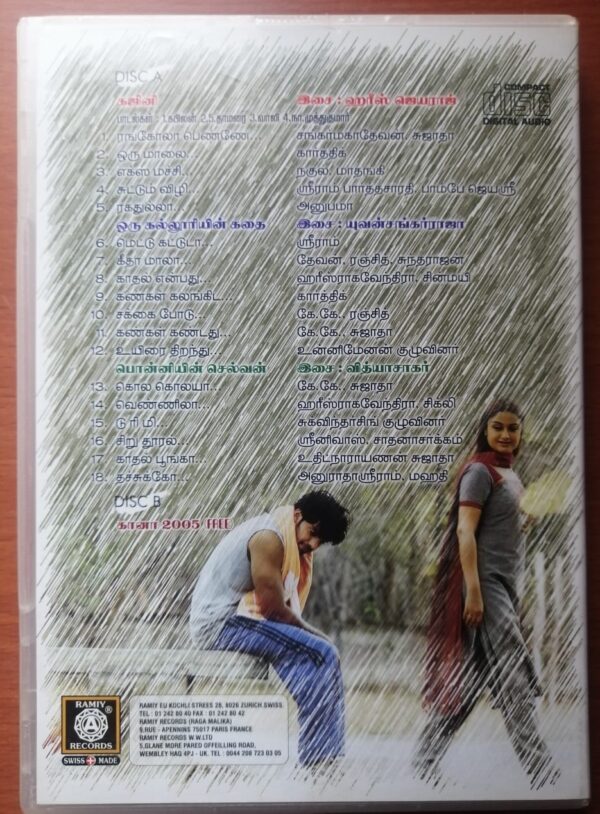 DISC A
COMPACT
disc
DIGITAL AUDIO
கஜினி இசை : ஹரீஸ் ஜெயராஜ்
பாடல்கள் : 1.கபிலன் 2.5.தாமரை 3.வாலி 4.நா.முத்துகுமார்
1. ரங்கோலா பெண்ணே... சங்கர்மகாதேவன், சுஜாதா
2. ஒரு மாலை... கார்த்திக்
3. எக்ஸ் மச்சி... நகுல், மாதங்கி
4. சுட்டும் விழி... ஸ்ரீராம் பார்த்தசாரதி, பாம்பே ஜெயஸ்ரீ
5. ரகதுல்லா... அனுபமா
ஒரு கல்லூரியின் கதை இசை : யுவன்சங்கர்ராஜா
6. மெட்டு கட்டுடா... ஸ்ரீராம்
7. கீதா மாலா... தேவன், ரஞ்சித், சுந்தராஜன்
8. காதல் என்பது... ஹரீஸ்ராகவேந்திரா, சின்மயி
9. கண்கள் கலங்கிட... கார்த்திக்
10. சக்கை போடு... கே.கே., ரஞ்சித்
11. கண்கள் கண்டது... கே.கே., சுஜாதா
12. உயிரை திறந்து... உன்னிமேனன் குழுவினர்
பொன்னியின் செல்வன் இசை : வித்யாசாகர்
13. கொல கொலயா... கே.கே., சுஜாதா
14. வெண்ணிலா... ஹரீஸ்ராகவேந்திரா, சிக்லி
15. டு ரி மி... சுக்விந்தர்சிங் குழுவினர்
16. சிறு தூரல்... ஸ்ரீனிவாஸ், சாதனாசர்க்கம்
17. காதல் பூங்கா... உதித்நாராயணன் சுஜாதா
18. தச்சுக்கோ... அனுராதாஸ்ரீராம், மஹதி
DISC B
கானா 2005/FREE
RAMIY
RECORDS
SWISS MADE
RAMIY EU KOCHLI STREES 28, 8026 ZURICH.SWISS.
TEL : 01 242 80 40 FAX : 01 242 80 42
RAMIY RECORDS (RAGA MALIKA)
9,RUE - APENNINS 75017 PARIS FRANCE
RAMIY RECORDS W W.LTD
5,GLANE MORE PARED OFFEILLING ROAD,
WEMBLEY HAQ 4PJ - UK. TEL : 0044 208 723 03 05